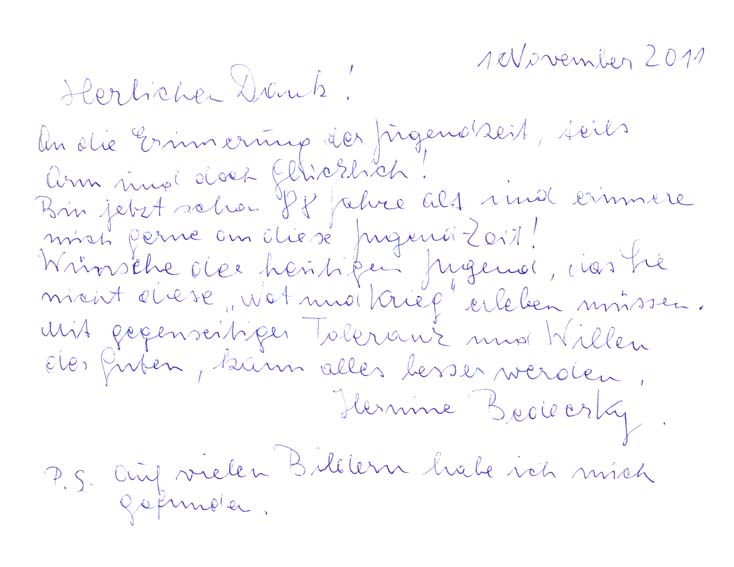 1 November 2011
Herzlichen Dank!
An die Erinnerung der Jugendzeit, teils
Arm und doch Glücklich!
Bin jetzt schon 88 Jahre alt und erinnere
mich gerne an diese JugendZeit!
Wünsche der heutigen Jugend, das Sie
nicht diese „Not und Krieg" erleben müssen.
Mit gegenseitiger Toleranz und Willen
des Guten, kann alles besser werden.
Hermine Bedeczky.
P.S. Auf vielen Bildern habe ich mich
gefunden.